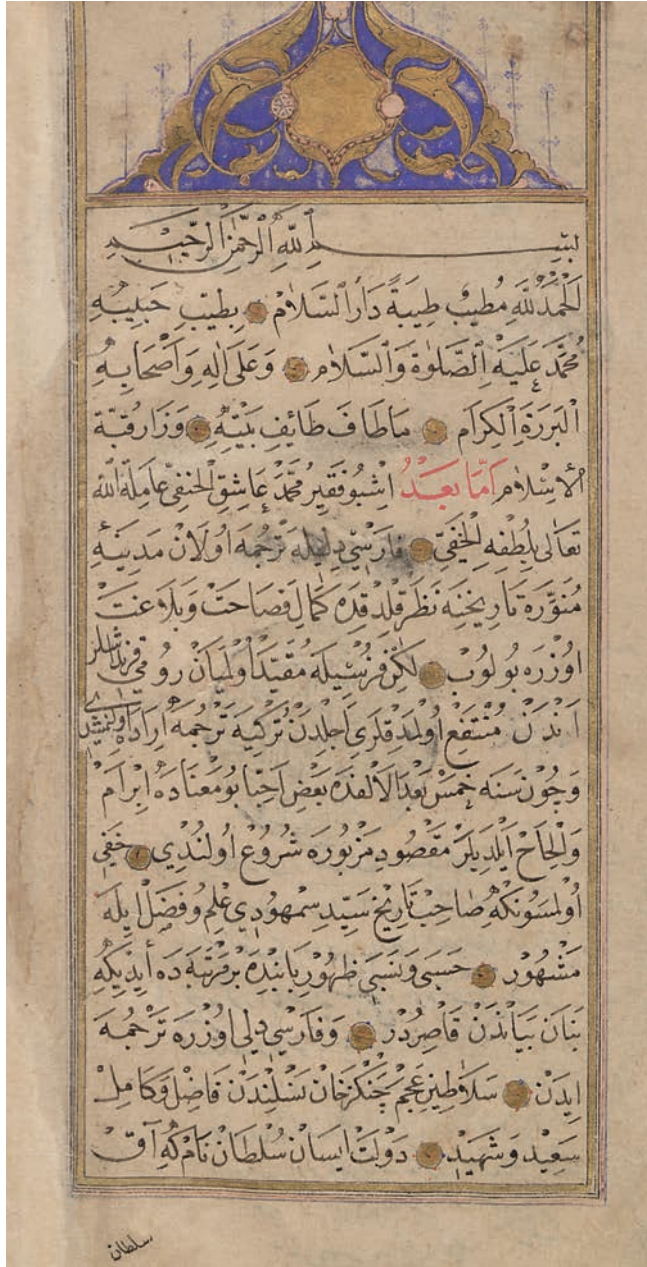 بسم الله الرحمن الرحيم
الحمد لله مطيب طيبة دار السلام بطيب حبيبه
محمد عليه الصلوة والسلام وعلى اله واصحابه
البررة الكرام ماطاف طائف بيته وزار قبة
الاسلام اما بعد اشبو فقير محمد عاشق الحنفي عامله الله
تعالى بلطفه الخفي فارسي ديليله ترجمه اولان مدينه
منوره تاريخنه نظر قلدقده كمال فصاحت وبلاغت
اوزره بولوب لكن فرسيله مقيد اولميان رومي قرنداشلر
اندن منتفع اولمدقلري اجلدن تركيه ترجمه اراده اولنمشيدي
وچون سنه خمس بعد الالفده بعض احبا بو معناده ابرام
والحاح ايلديلر مقصود مزبوره شروع اولندي خفي
اولمسونكه صاحب تاريخ سيد سمهودي علم وفضل ايله
مشهور حسبي ونسبي ظهور بابنده بر مرتبه ده ايديكه
بنان بياندن قاصردر وفارسي ديلي اوزره ترجمه
ايدن سلاطين عجم چنكز خان نسلندن فاضل وكامل
سعيد وشهيد دولت ايسان سلطان نام كه آق
سلطان